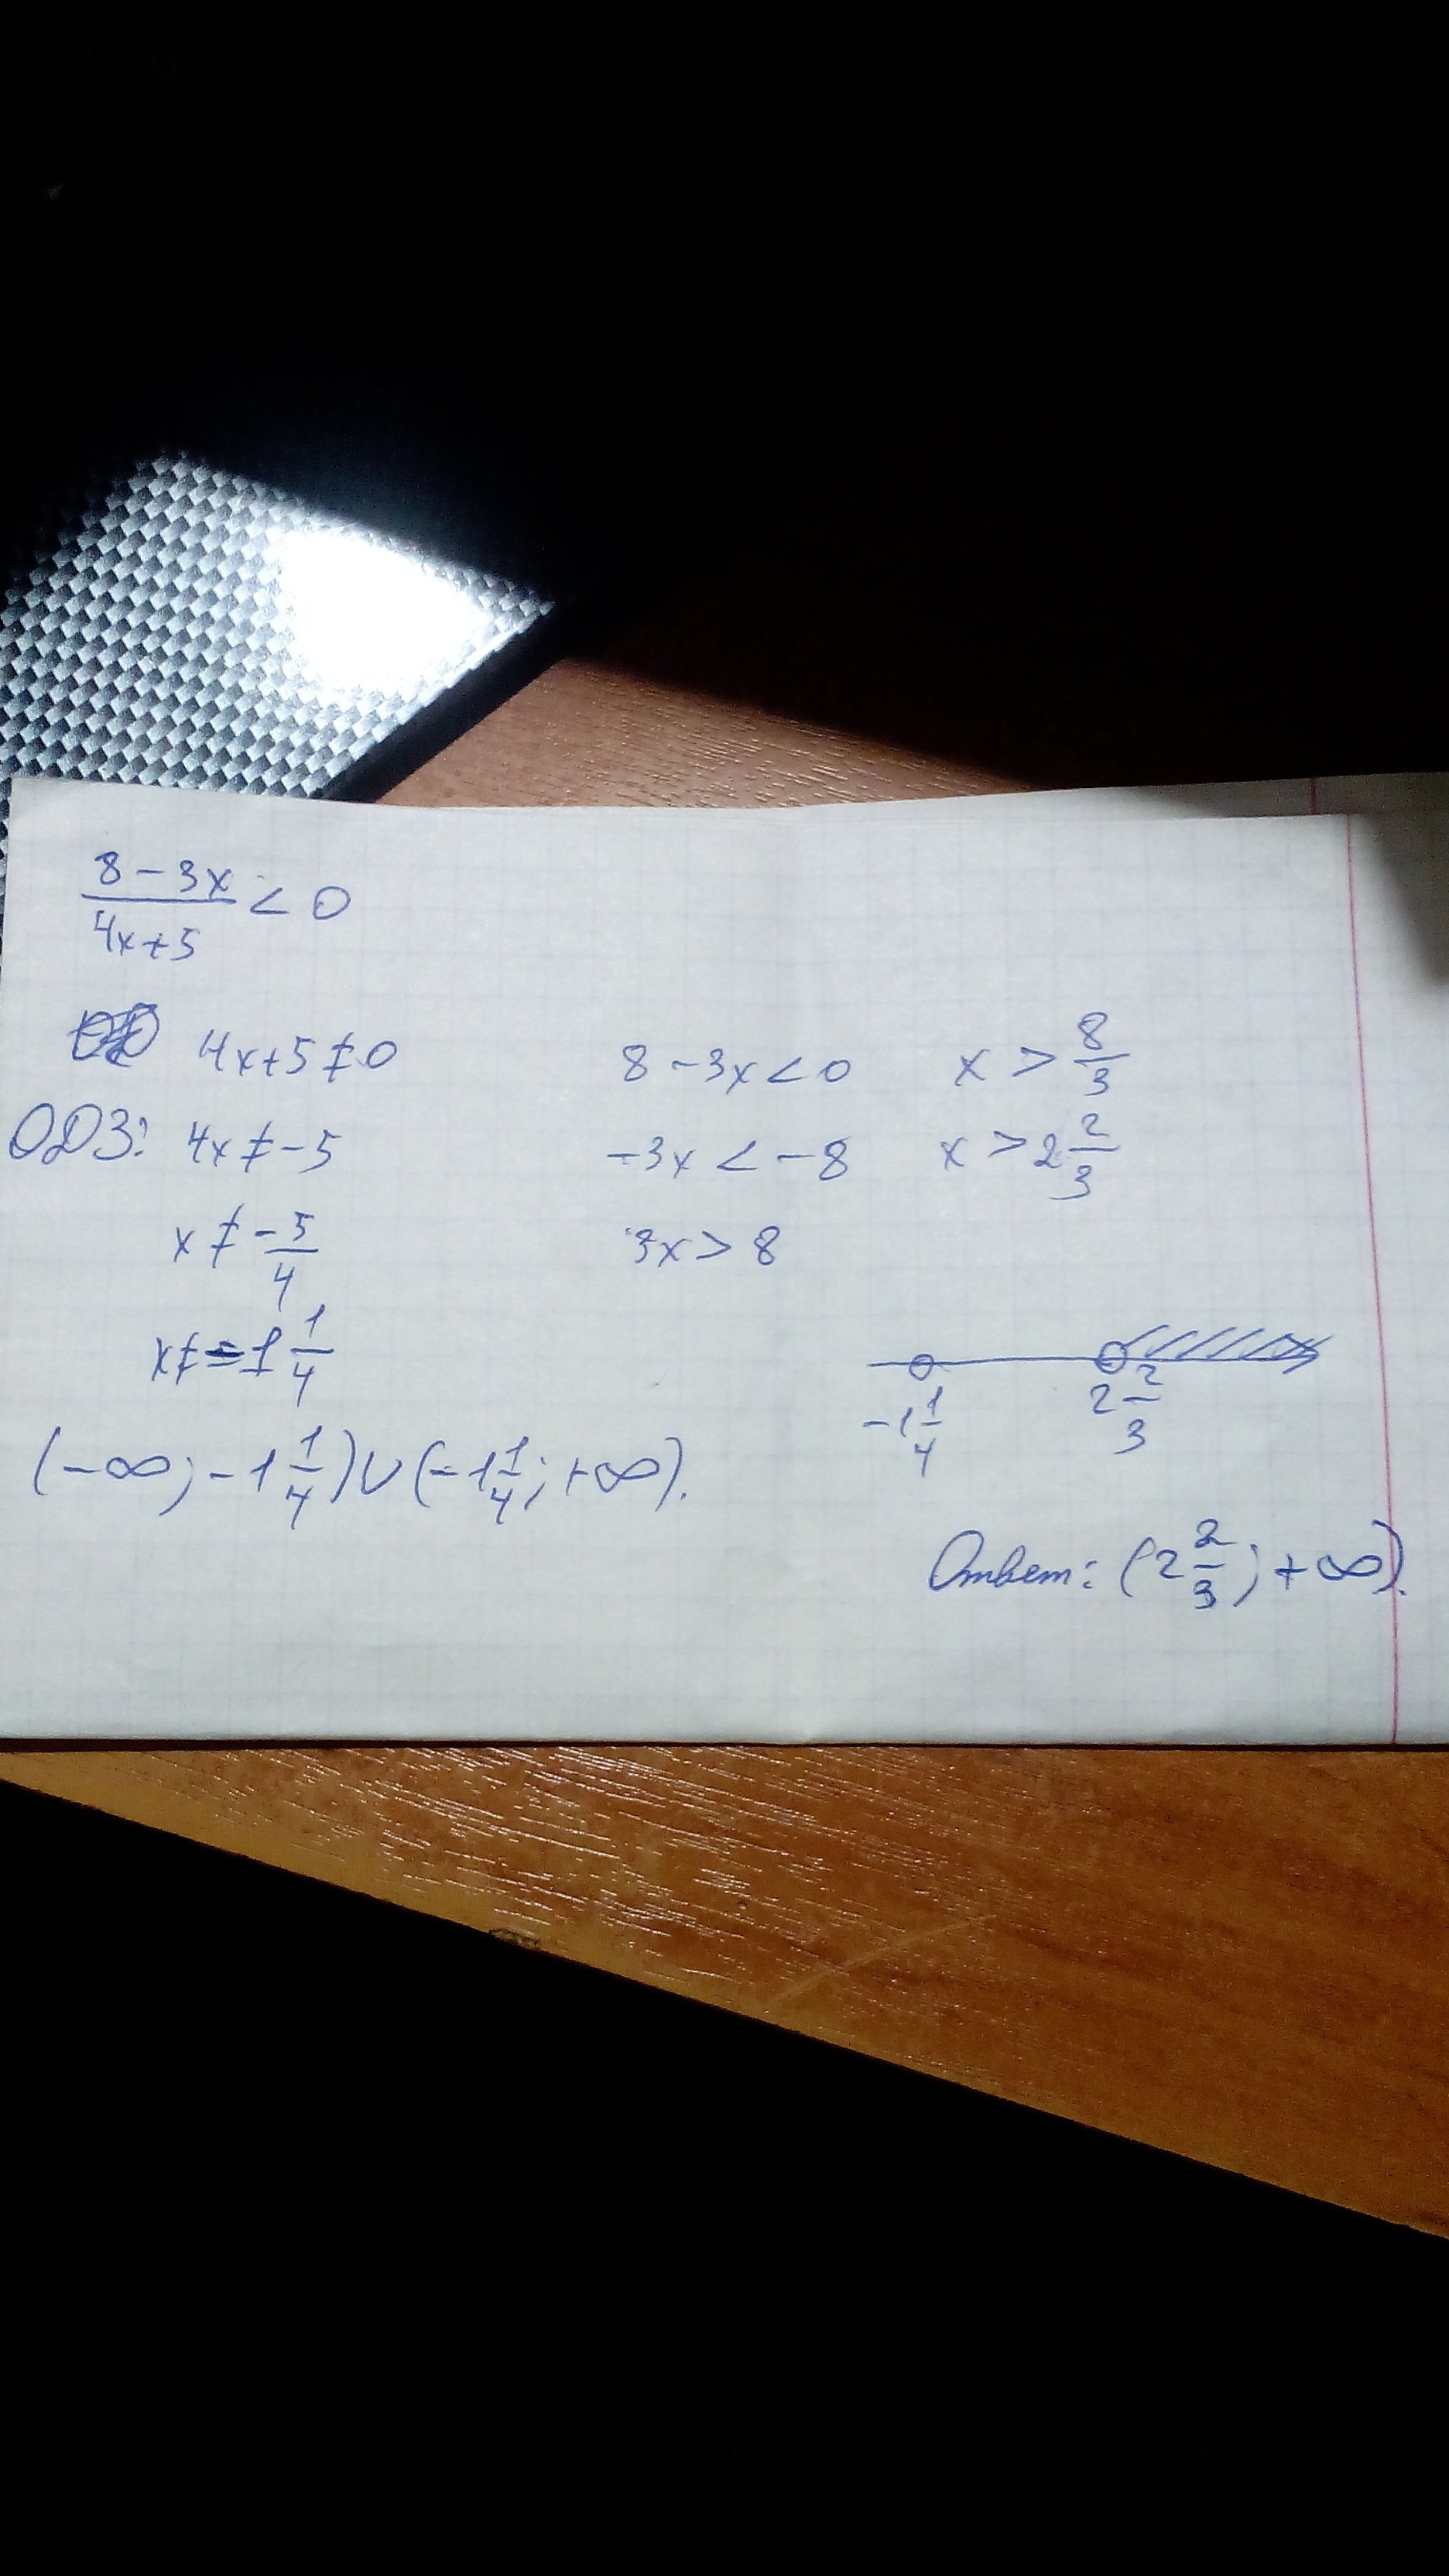 8 - 3x
4x+5 < 0
4x+5 ≠ 0
ОДЗ: 4x ≠ -5
x ≠ -5/4
x ≠ -1 1/4
(-∞; -1 1/4) ∪ (-1 1/4; +∞).
8 - 3x < 0
-3x < -8
3x > 8
x > 8/3
x > 2 2/3
-1 1/4 2 2/3
Ответ: (2 2/3; +∞).